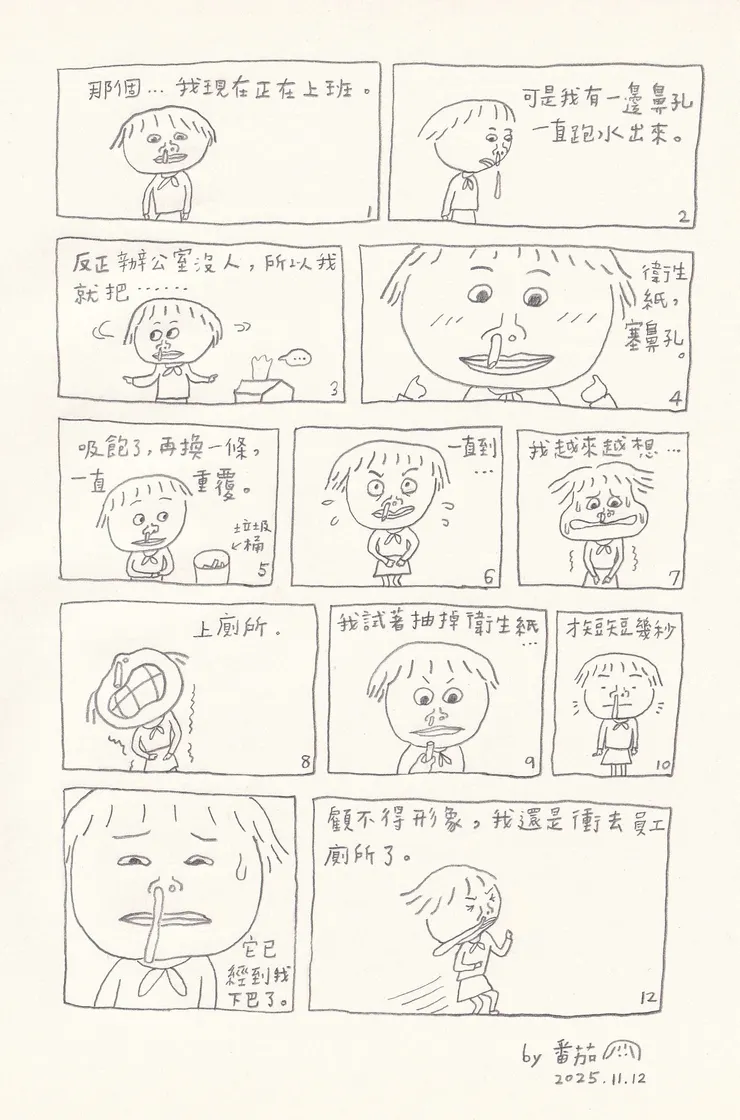 那個... 我現在正在上班。
1
可是我有一邊鼻孔
一直跑水出來。
2
反正辦公室沒人，所以我
就把......
...
3
衛生
紙，
塞鼻孔
。
4
吸飽了，再換一條，
一直 重覆。
垃圾
桶
5
一直到
...
6
我越來越想...
7
上廁所.
8
我試著抽掉衛生紙
...
9
才短短幾秒
10
它已
經到我
下巴了。
顧不得形象，我還是衝去員工
廁所了。
12
by 番茄
2025.11.12